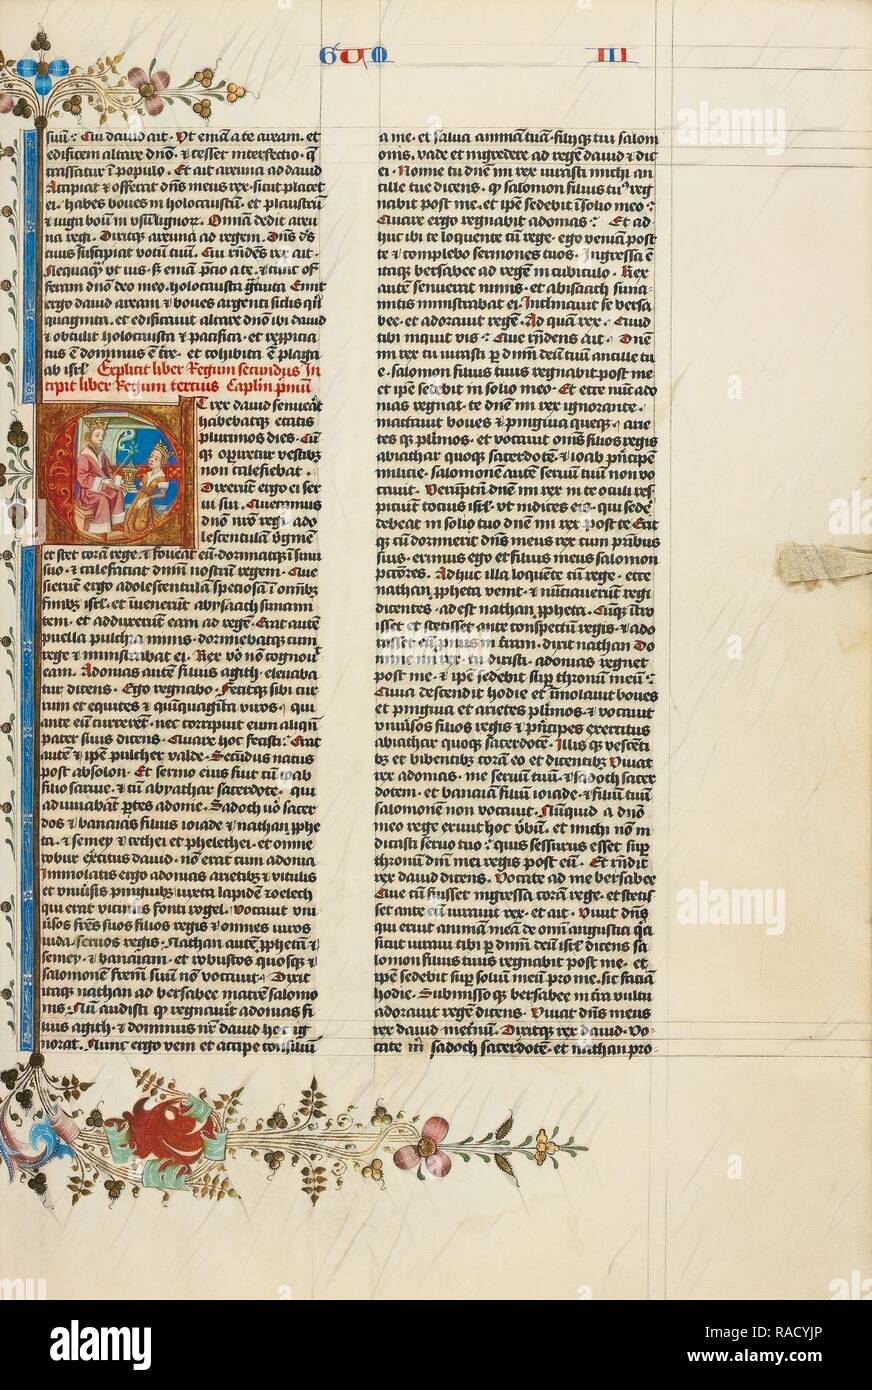 GUO III
suū? Cui dauid ait. Ut emā a te aream. et
edificem altare dnō. et cesset interfectio. q̄
grassatur ī populo. Et ait areuna ad dauid
Accipiat et offerat dn̄s meus rex sicut placet
ei. habes boues in holocaustū. et plaustrū
et iuga boum in usū lignor. Omnia dedit areu
na regi. Dixitq̄ areuna ad regem. Dn̄s ds̄
tuus suscipiat votū tuū. Cui rn̄dēs rex ait.
Nequaq̄ ut uis. sꝫ emā p̄cio a te. et nō of
feram dnō deo meo holocausta gͣtuita. Emit
ergo dauid aream et boues argenti siclis qn̄
quaginta. et edificauit altare dnō ibi dauid
et obtulit holocausta et pacifica. et repropicia
tus ē dominus ē tre. et cohibita ē plaga
ab isrl̄. Explicit liber Regum secundus In
cipit liber Regum tercius Caplm p̄mū
Et rex dauid senuerat
habebatq̄ etatis
plurimos dies. Cū
q̄ operiretur vestibꝫ
non calefiebat.
Dixerunt ergo ei ser
ui sui. Queramus
dnō nrō regi ado
lescentulam v̄ginē
et stet corā rege. et foueat eū. dormiatq̄ ī sinu
suo. et calefaciat dnm̄ nostrū regem. Que
sierunt ergo adolescentulā speciosā ī omībꝫ
finibꝫ isrl̄. et īuenerūt abysaach sunami
tem. et adduxerūt eam ad regem. Erat autē
puella pulchra nimis. dormiebatq̄ cum
rege et ministrabat ei. Rex uō nō cognouit
eam. Adonias autē filius agith. eleuaba
tur dicens. Ego regnabo. Fecitq̄ sibi cur
rum et equites et quīquagīta viros. qui
ante eū currerēt. nec corripuit eum aliqn̄
pater suus dicens. Quare hoc fecisti? Erat
autē et ip̄e pulcher valde. Secūdus natus
post absolon. Et sermo eius fuit cū ioab
filio saruie. et cū abyathar sacerdote. qui
adiuuabāt p̄tes adonie. Sadoch uō sacer
dos et banaias filius ioiade et nathan p̄phe
ta. et semey et cethei et phelethei. et omne
robur exercitus dauid. nō erat cum adonia
Immolatis ergo adonias arietibꝫ et vitulis
et vniūsis pinguibꝫ iuxta lapidē zoelech
qui erat vicinus fonti rogel. vocauit vni
ūsos frēs suos filios regis et omnes uiros
iuda seruos regis. Nathan autē p̄phetā et
semey. et banaiam. et robustos quosq̄ et
salomonē frēm suū nō vocauit. Dixit
itaq̄ nathan ad bersabee matrē salomo
nis. Nū audisti q̄ regnauit adonias fi
lius agith. et dominus nr̄ dauid hoc ig
norat. Nunc ergo veni et accipe consiliū
a me. et salua animā tuā. filijq̄ tui salom
onis. vade et ingredere ad regē dauid et dic
ei. Nonne tu dnē mi rex iurasti michi an
cille tue dicens. q̄ salomon filius tuꝰ reg
nabit post me. et ip̄e sedebit ī solio meo?
Quare ergo regnabit adonias? Et ad
huc ibi te loquente cū rege. ego veniā post
te et complebo sermones tuos. Ingressa ē
itaq̄ bersabee ad regē in cubiculo. Rex
autē senuerat nimis. et abisaach suna
mitis ministrabat ei. Inclinauit se bersa
bee. et adorauit regē. Ad quā rex. Quid
tibi inquit vis? Que rn̄dens ait. Dnē
mi rex tu iurasti p̄ dnm̄ deū tuū ancille tu
e. salomon filius tuus regnabit post me
et ip̄e sedebit in solio meo. Et ecce nūc ado
nias regnat. te dnē mi rex ignorante.
mactauit boues et pinguia queq̄. arie
tes q̄ pl̄imos. et vocauit omīs filios regis
abiathar quoq̄ sacerdotē et ioab p̄ncipē
milicie. salomonē autē seruū tuū non vo
cauit. Verūptn̄ dnē mi rex in te oculi res
piciūt tocius isrl̄. ut indices eis. qui sedē
debeat in solio tuo dnē mi rex post te. Erit
q̄ cū dormierit dn̄s meus rex cum pr̄ibus
suis. erimus ego et filius meus salomon
p̄ctōres. Adhuc illa loquēte cū rege. ecce
nathan p̄pheta venit. et nūciauerūt regi
dicentes. adest nathan p̄pheta. Cūq̄ ītro
isset et stetisset ante conspectū regis. et ado
rasset eū p̄nus in t̄ram. dixit nathan Do
mine mi rex. tu dixisti. adonias regnet
post me. et ip̄e sedebit sup̄ thronū meū?
Quia descendit hodie et īmolauit boues
et pinguia et arietes pl̄imos. et vocauit
vniūsos filios regis et p̄ncipes exercitus
abiathar quoq̄ sacerdotē. Illis q̄ vescēti
bꝫ et bibentibꝫ corā eo et dicentibꝫ Viuat
rex adonias. me seruū tuū. et sadoch sacer
dotem. et banaiā filiū ioiade. et filiū tuū
salomonē non vocauit. Nūquid a dnō
meo rege exiuit hoc ūbū. et michi nō in
dicasti seruo tuo? quis sessurus esset sup̄
thronū dnī mei regis post eū. Et rn̄dit
rex dauid dicens. Vocate ad me bersabee
Que cū fuisset ingressa corā rege. et stetis
set ante eū iurauit rex. et ait. Viuit dn̄s
qui eruit animā meā de omī angustia. q̄a
sicut iuraui tibi p̄ dnm̄ deū isrl̄ dicens sa
lomon filius tuus regnabit post me. et
ip̄e sedebit sup̄ soliū meū pro me. sic faciā
hodie. Submisso q̄ bersabee in t̄ra vultu
adorauit regē dicens. Viuat dn̄s meus
rex dauid ī etnū. Dixitq̄ rex dauid. Vo
cate m̄ sadoch sacerdotē. et nathan pro
alamy
Image ID: RACYJP
www.alamy.com